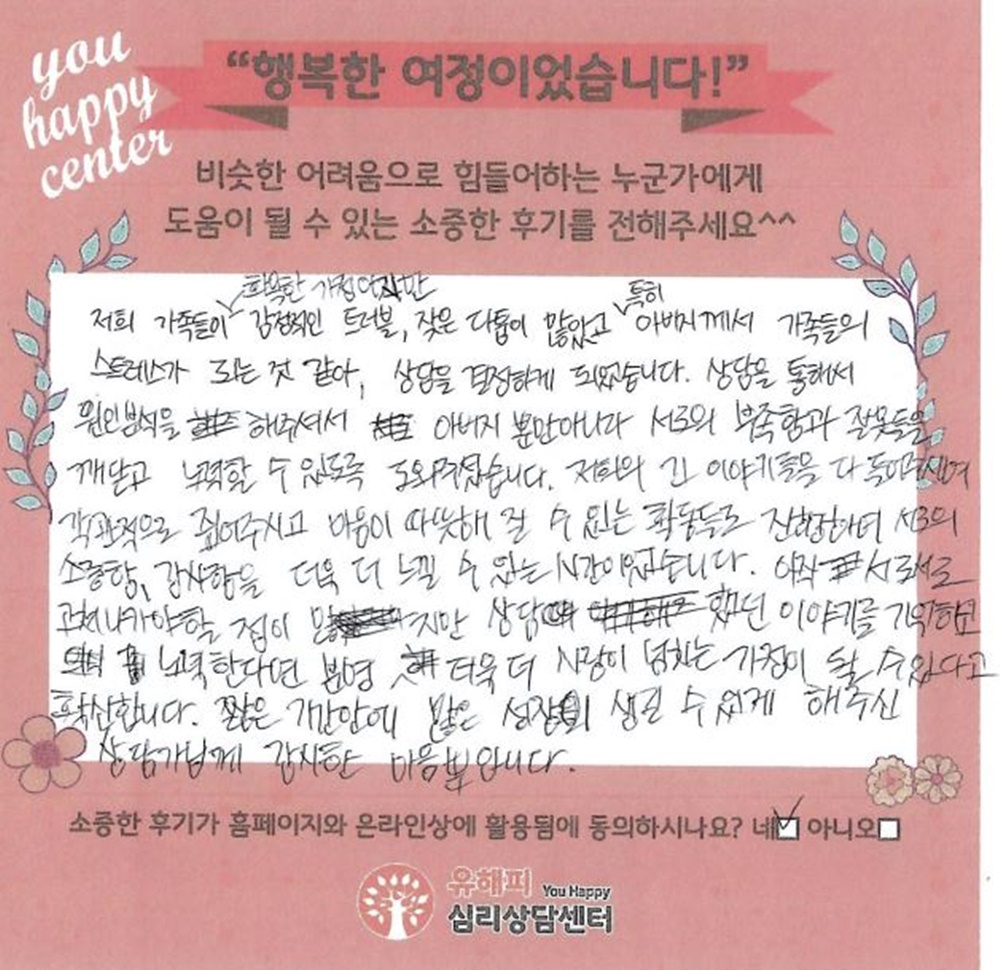 you
happy
center
“행복한 여정이었습니다!”
비슷한 어려움으로 힘들어하는 누군가에게
도움이 될 수 있는 소중한 후기를 전해주세요^^
화목한 가정이지만 특히
저희 가족들이 감정적인 트러블, 잦은 다툼이 많았고 아버지께서 가족들의
스트레스가 되는 것 같아, 상담을 결정하게 되었습니다. 상담을 통해서
원인분석을 해주셔서 아버지 뿐만아니라 서로의 부족함과 잘못들을
깨닫고 노력할 수 있도록 도와주셨습니다. 저희의 긴 이야기들을 다 들어주시며
객관적으로 집어주시고 마음이 따뜻해 질 수 있는 활동들로 진행하며 서로의
소중함, 감사함을 더욱 더 느낄 수 있는 시간이었습니다. 아직 서로서로
고쳐나가야할 점이 많지만 상담 했던 이야기를 기억하면
노력한다면 분명 더욱 더 사랑이 넘치는 가정이 될 수 있다고
확신합니다. 짧은 기간안에 많은 성장이 생길 수 있게 해주신
상담가님께 감사한 마음뿐입니다.
소중한 후기가 홈페이지와 온라인상에 활용됨에 동의하시나요? 네☑ 아니오☐
유해피 You Happy
심리상담센터